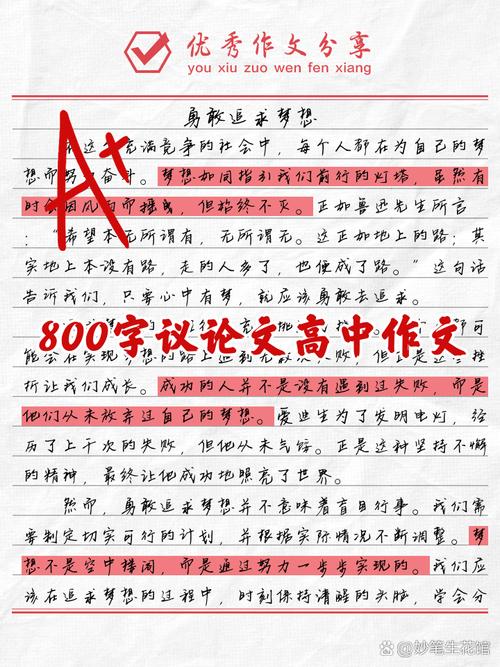 优秀作文分享
you xiu zuo wen fen xiang
勇敢追求梦想
这 充满竞争的社会中，每个人都在为自己的梦
想而努力奋斗。梦想如同指引我们前行的灯塔，虽然有
时会因风雨而摇曳，但始终不灭。正如鲁迅先生所言
：“希望本无所谓有，无所谓无。这正如地上的路；其
实地上本没有路，走的人多了，也便成了路。”这句话
告诉我们，只要心中有梦，就应该勇敢去追求。
800字议论文高中作文
能会在实现梦想的路上遇到无数次失败，但正是这些挫
折让我们成长。成功的人并不是没有遇到过失败，而是
他们从未放弃过自己的梦想。爱迪生为了发明电灯，经
历了上千次的失败，但他从未气馁。正是这种坚持不懈
的精神，最终让他成功地照亮了世界。
然而，勇敢追求梦想并不意味着盲目行事。我们需
要制定切实可行的计划，并根据实际情况不断调整。梦
想不是空中楼阁，而是通过努力一步步实现的。我们应
该在追求梦想的过程中，时刻保持清醒的头脑，学会分
A+
@妙笔生花馆